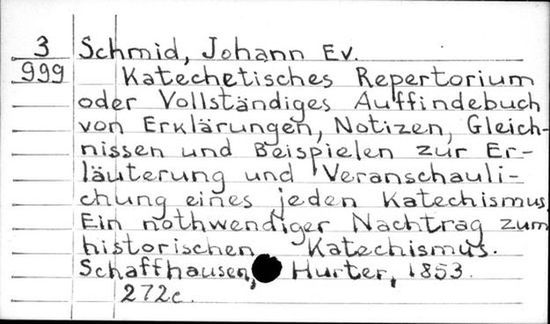 3 Schmid, Johann Ev.
999 Katechetisches Repertorium
oder Vollständiges Auffindebuch
von Erklärungen, Notizen, Gleich-
nissen und Beispielen zur Er-
läuterung und Veranschauli-
chung eines jeden Katechismus.
Ein nothwendiger Nachtrag zum
historischen Katechismus.
Schaffhausen, Hurter, 1853.
272c.